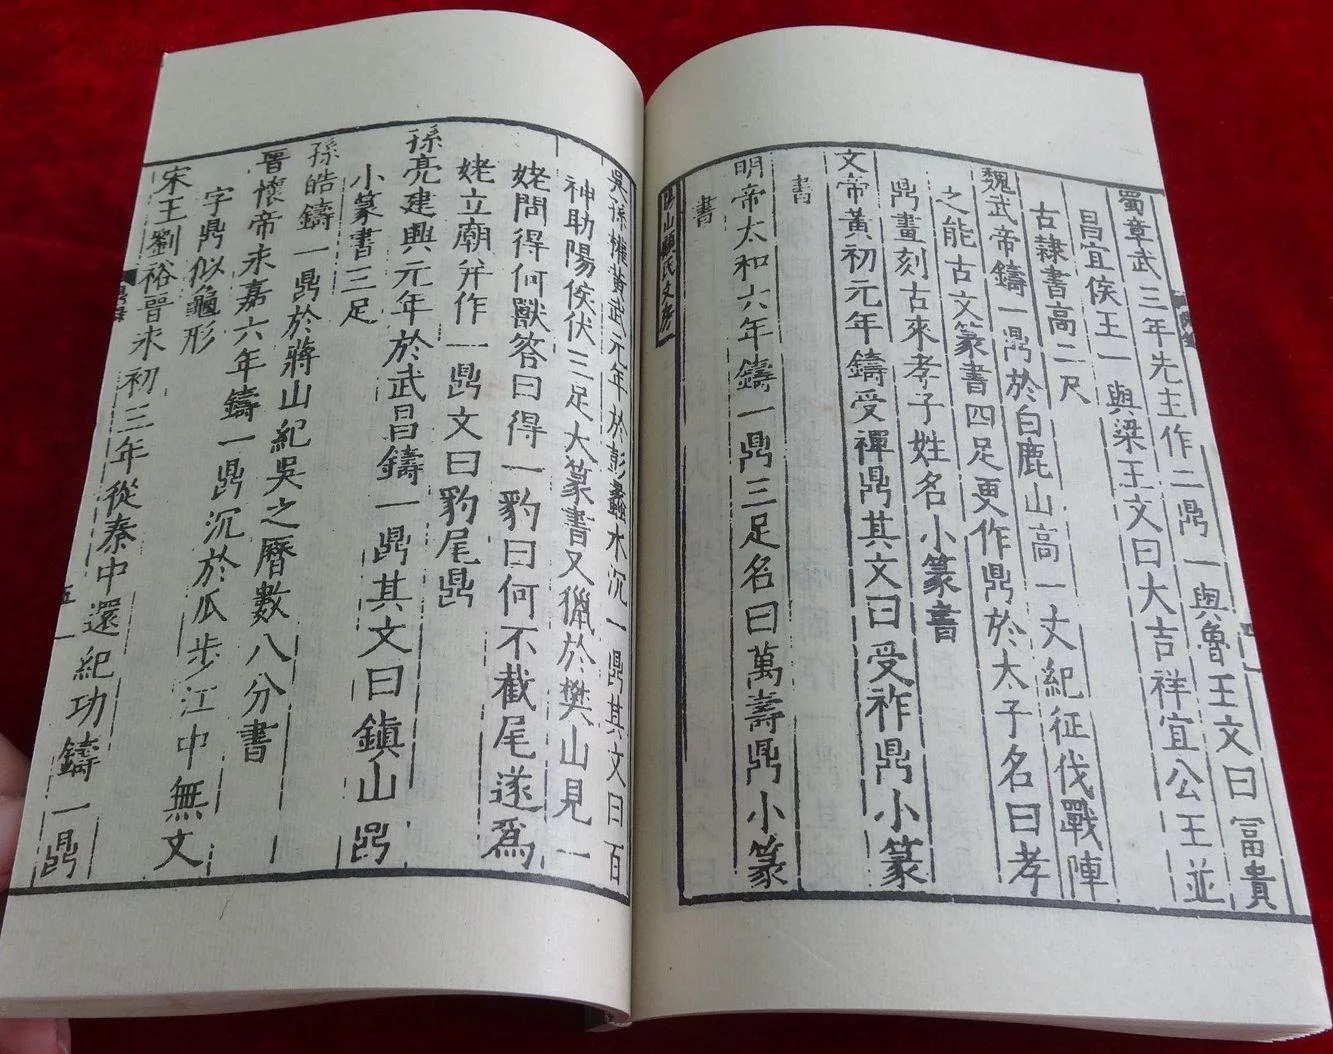 蜀章武三年先主作二鼎一與魯王文曰冨貴
昌宜侯王一與梁王文曰大吉祥宜公王並
古隸書高二尺
魏武帝鑄一鼎於白鹿山高一丈紀征伐戰陣
之能古文篆書四足更作鼎於太子名曰孝
鼎畫刻古來孝子姓名小篆書
文帝黃初元年鑄受禪鼎其文曰受祚鼎小篆
書
明帝太和六年鑄一鼎三足名曰萬壽鼎小篆
書
山顧氏文房
吳孫權黃武元年於彭蠡水沉一鼎其文曰百
神助陽侯伏三足大篆書又獵於樊山見一
姥問得何獸答曰得一豹曰何不截尾遂爲
姥立廟并作一鼎文曰豹尾鼎
孫亮建興元年於武昌鑄一鼎其文曰鎮山鼎
小篆書三足
孫皓鑄一鼎於蔣山紀吳之曆數八分書
晉懷帝永嘉六年鑄一鼎沉於瓜步江中無文
字鼎似龜形
宋王劉裕晉永初三年從秦中還紀功鑄一鼎
鼎錄
五